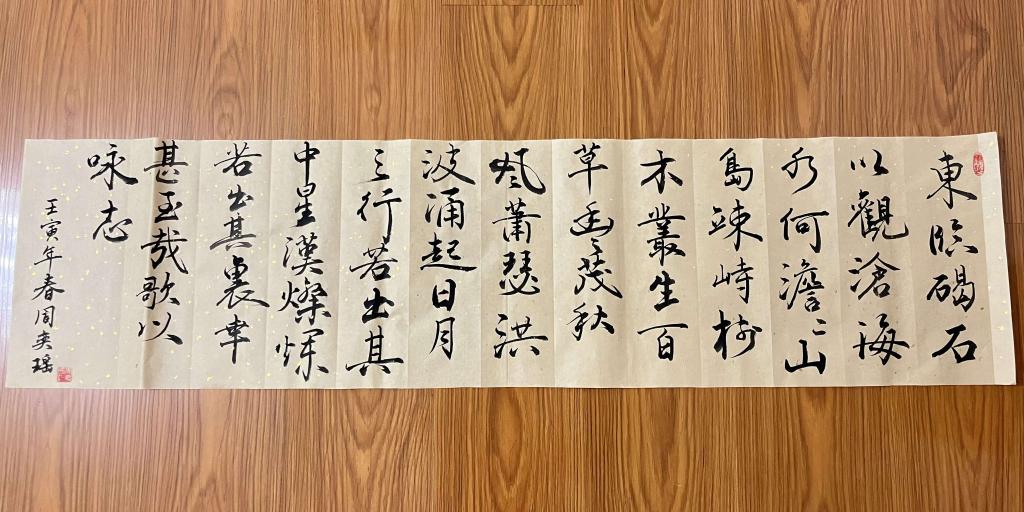 東臨碣石
以觀滄海
水何澹々山
島竦峙樹
木叢生百
草豐茂秋
風蕭瑟洪
波涌起日月
之行若出其
中星漢燦爛
若出其裏幸
甚至哉歌以
咏志
壬寅年春周奕瑶